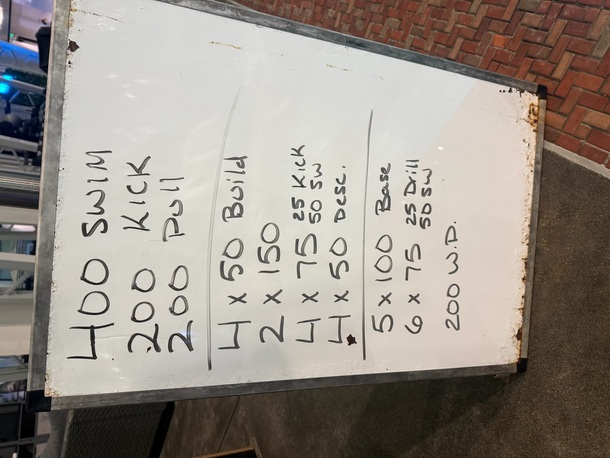 400 SWIM
200 KICK
200 Pull
4 x 50 Build
2 x 150
4 x 75 25 Kick
50 SW
4 x 50 Desc.
5 x 100 Base
6 x 75 25 Drill
50 SW
200 W.D.